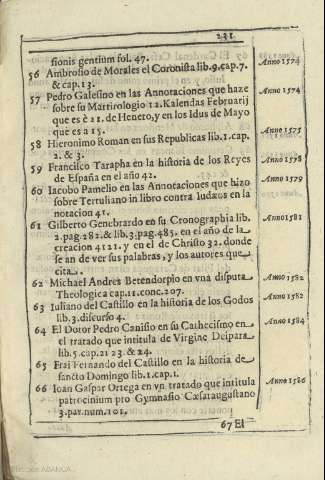 231
sionis gentium fol. 47.
56 Ambrosio de Morales el Coronista lib.9.cap.7. Anno 1574
& cap.13.
57 Pedro Galesino en las Annotaciones que haze Anno 1574
sobre su Martirologio 12. Kalendas Februarij
que es è 21. de Henero, y en los Idus de Mayo
que es a 15.
58 Hieronimo Roman en sus Republicas lib.1.cap. Anno 1575
2. & 3.
59 Francisco Tarapha en la historia de los Reyes Anno 1578
de España en el año 42.
60 Iacobo Pamelio en las Annotaciones que hizo Anno 1579
sobre Tertuliano in libro contra Iudæos en la
notacion 41.
61 Gilberto Genebrardo en su Cronographia lib. Anno 1581
2.pag.282.& lib.3.pag.485. en el año de la
creacion 4121. y en el de Christo 32. donde
se an de ver sus palabras, y los autores que
cita.
62 Michael Andres Betendorpio en vna disputa Anno 1582
Theologica cap.11.conc.207.
63 Iuliano del Castillo en la historia de los Godos Anno 1582
lib.3.discurso 4.
64 El Dotor Pedro Canisio en su Cathecismo en Anno 1584
el tratado que intitula de Virgine Deipara
lib.5.cap.21 23.& 24.
65 Frai Fernando del Castillo en la historia de
sancto Domingo lib.1.cap.1.
66 Ioan Gaspar Ortega en vn tratado que intitula Anno 1586
patrocinium pro Gymnasio Cæsaraugustano
3.par.num.101.
67 El